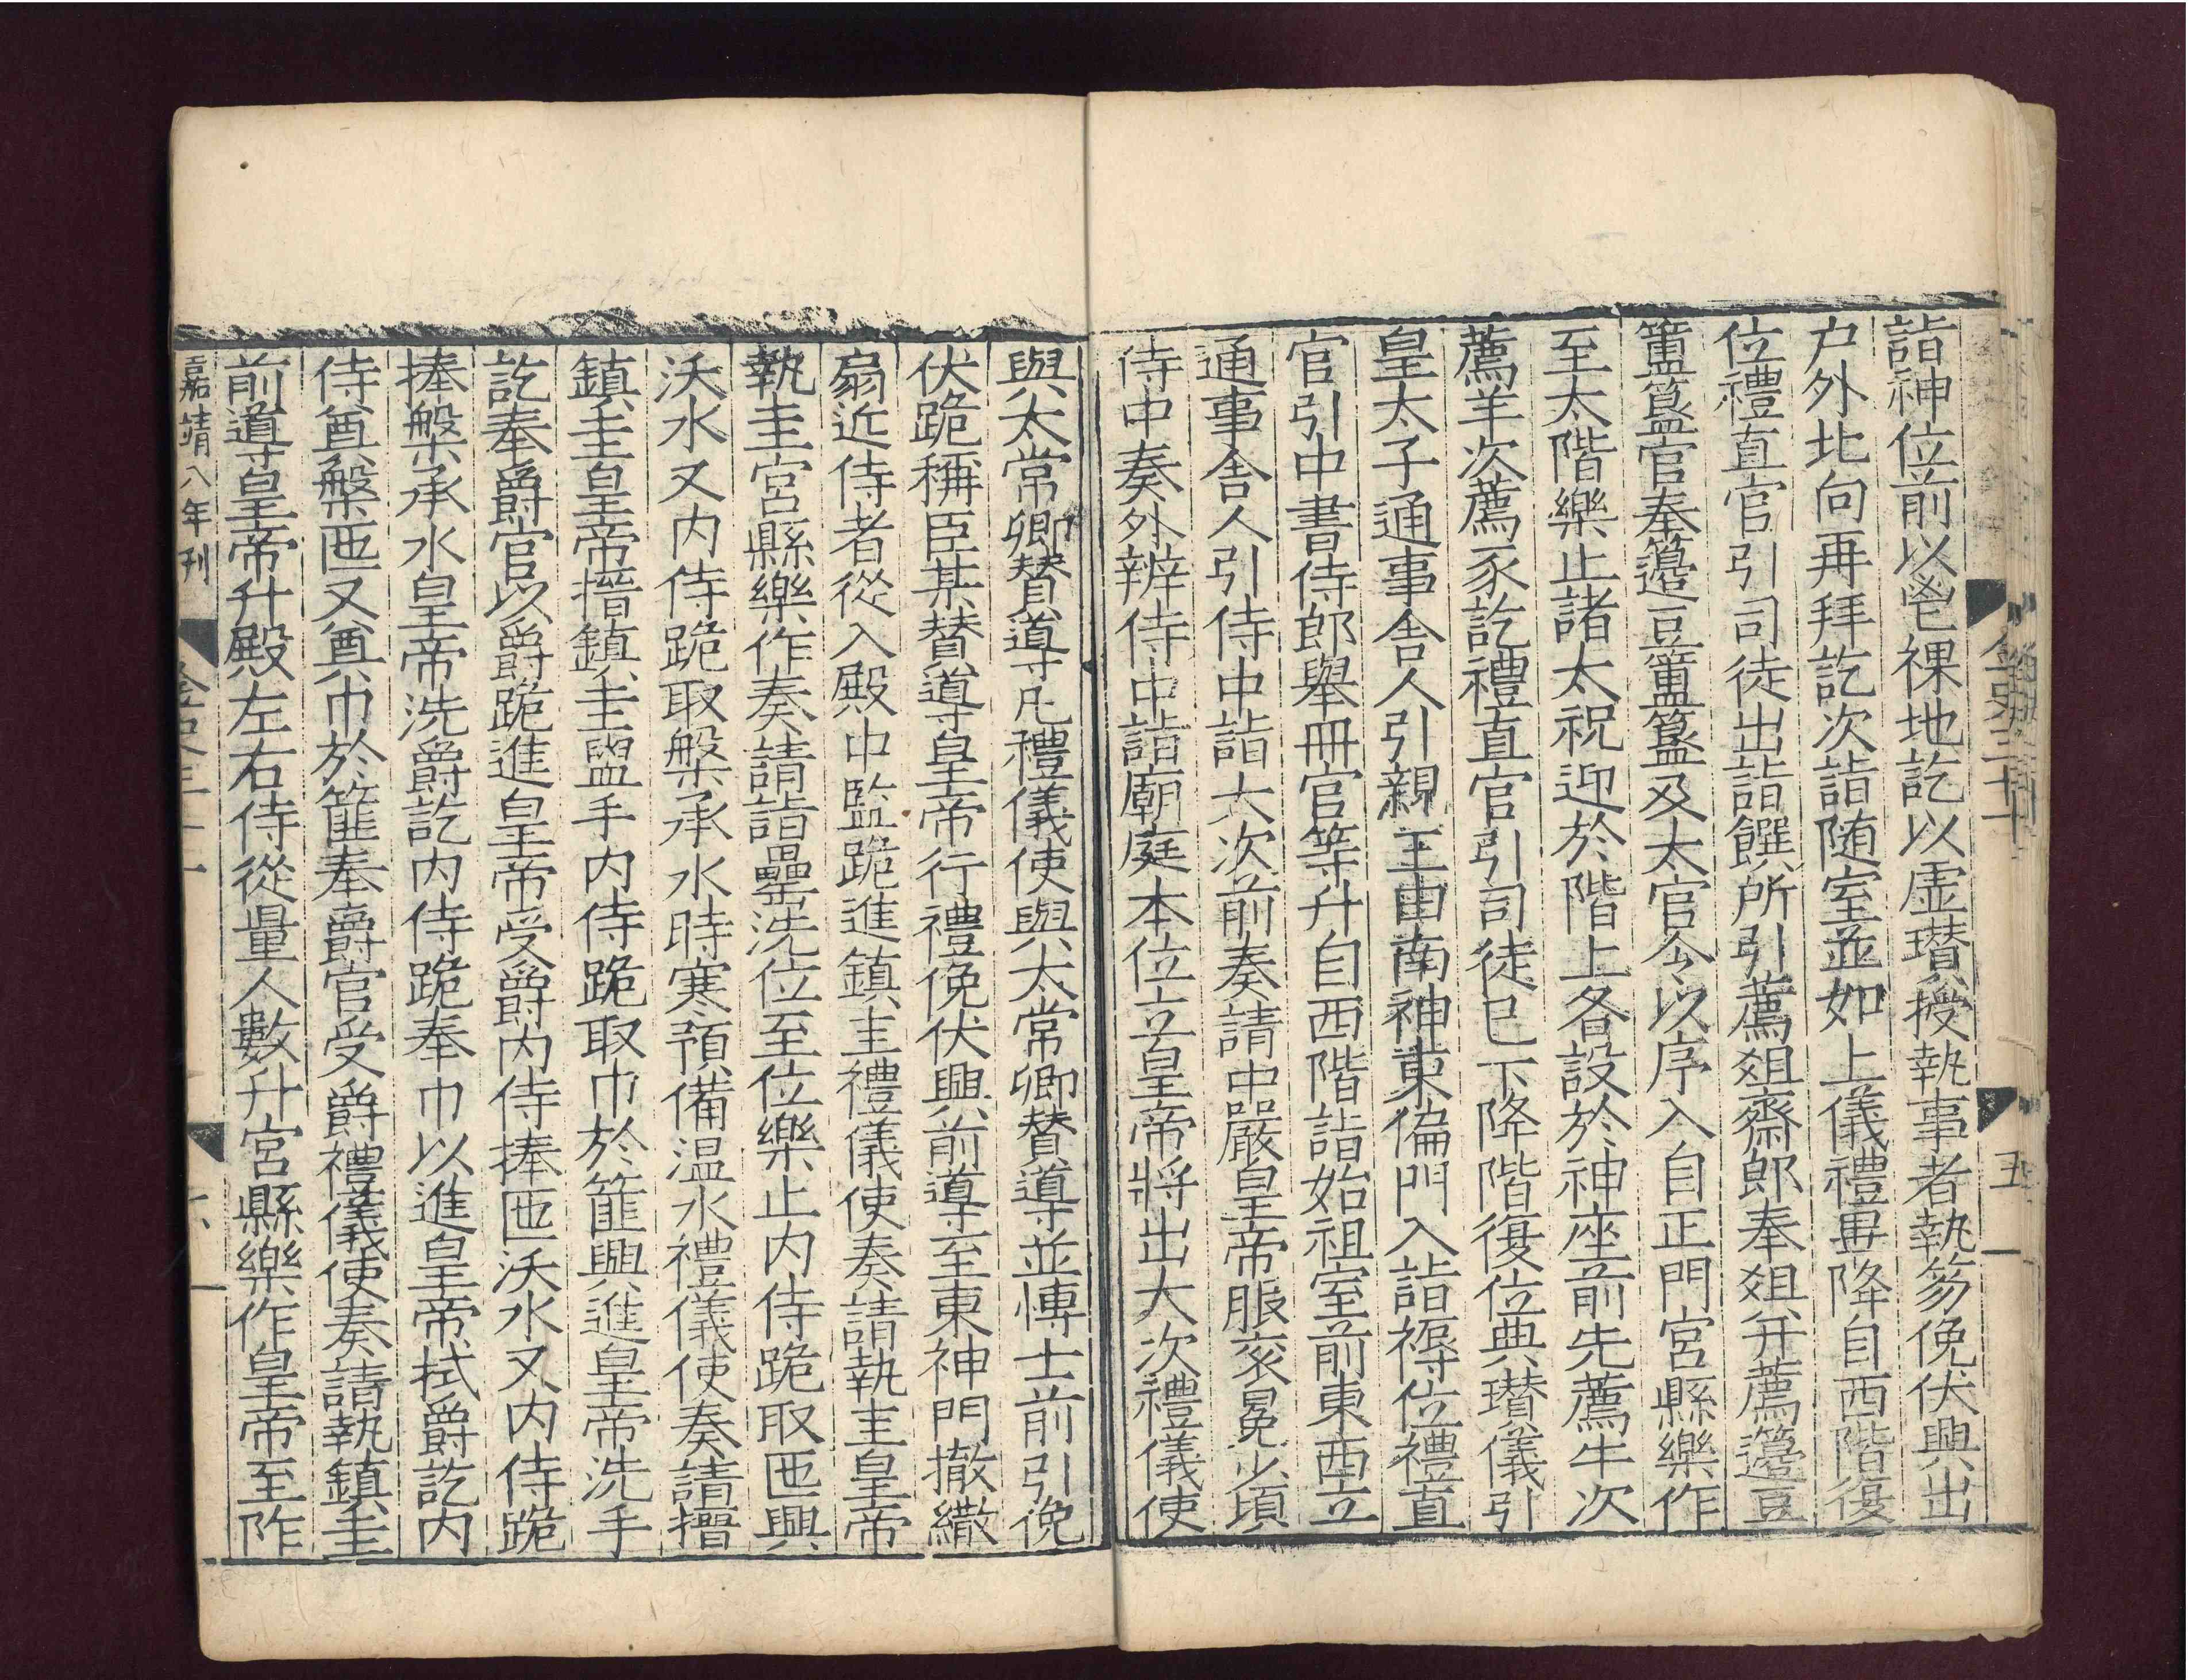 詣神位前以鬯祼地訖以虛瓚授執事者執笏俛伏興出
户外北向再拜訖次詣随室並如上儀禮畢降自西階復
位禮直官引司徒出詣饌所引薦俎齋郎奉俎并薦籩豆
簠簋官奉籩豆簠簋及太官令以序入自正門宮縣樂作
至太階樂止諸太祝迎於階上各設於神座前先薦牛次
薦羊次薦豕訖禮直官引司徒已下降階復位典瓚儀引
皇太子通事舍人引親王由南神東偏門入詣褥位禮直
官引中書侍郎舉冊官等升自西階詣始祖室前東西立
通事舍人引侍中詣大次前奏請中嚴皇帝服衮冕少頃
侍中奏外辨侍中詣廟庭本位立皇帝將出大次禮儀使
與太常卿賛導凡禮儀使與太常卿賛導並博士前引俛
伏跪稱臣某賛導皇帝行禮俛伏興前導至東神門撤繖
扇近侍者從入殿中監跪進鎮圭禮儀使奏請執圭皇帝
執圭宮縣樂作奏請詣罍洗位至位樂止内侍跪取匜興
沃水又内侍跪取槃承水時寒預備温水禮儀使奏請搢
鎮圭皇帝搢鎮圭盥手内侍跪取巾於篚興進皇帝洗手
訖奉爵官以爵跪進皇帝受爵内侍捧匜沃水又内侍跪
捧槃承水皇帝洗爵訖内侍跪奉巾以進皇帝拭爵訖内
侍奠槃匜又奠巾於篚奉爵官受爵禮儀使奏請執鎮圭
前導皇帝升殿左右侍從量人數升宮縣樂作皇帝至阼
嘉靖八年刊